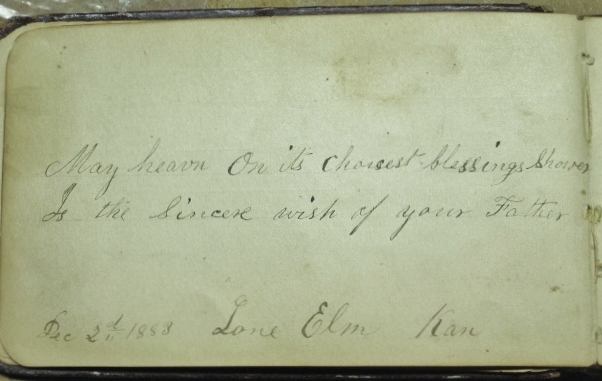 May heavn On its choicest blessings Shower
Is the Sincere wish of your Father
Dec 2d 1888 Lone Elm Kan